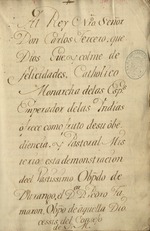 Al Rey Nro Señor
Don Carlos Tercero, que
Dios Guarde, colme de
felicidades, Catholico
Monarcha de las Esps
Emperador de las Indias
ofrece como fruto de su obe
diencia, y Pastoral Mis
terio esta demonstracion
del vastissimo Obpdo de
Durango, el Dr Pedro Ta
maron, Obpo de aquella Dio
cessis del Consejo